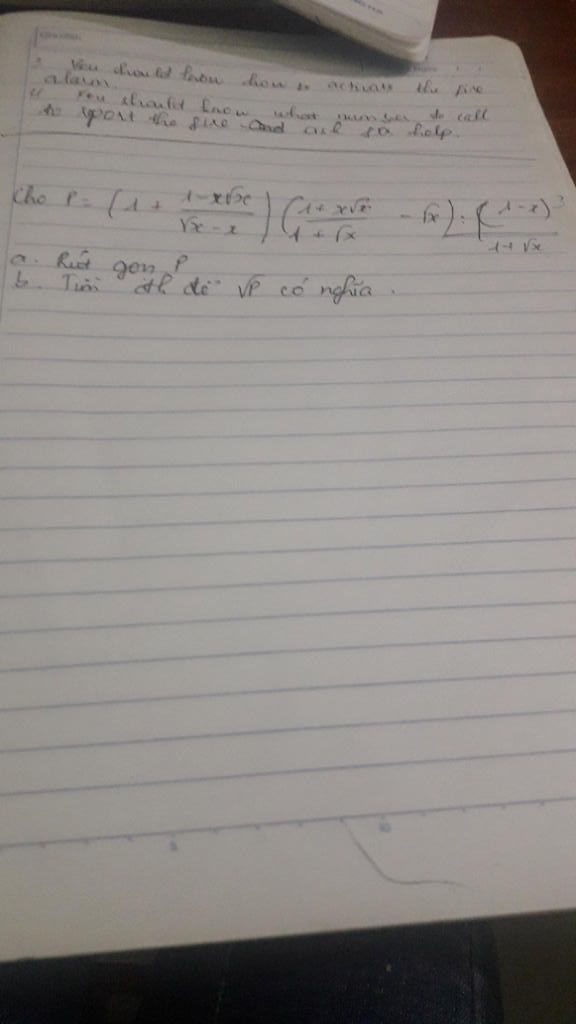 3 You should know how to activate the fire
alarm.
4 You should know what number to call
to rport the fire and ask for help.
Cho P = (1 + \frac{1-x√x}{√x-x}) (\frac{1+x√x}{1+√x} - √x) : \frac{(1-x)^3}{1+√x}
a. Rút gọn P
b. Tìm đk để √P có nghĩa.